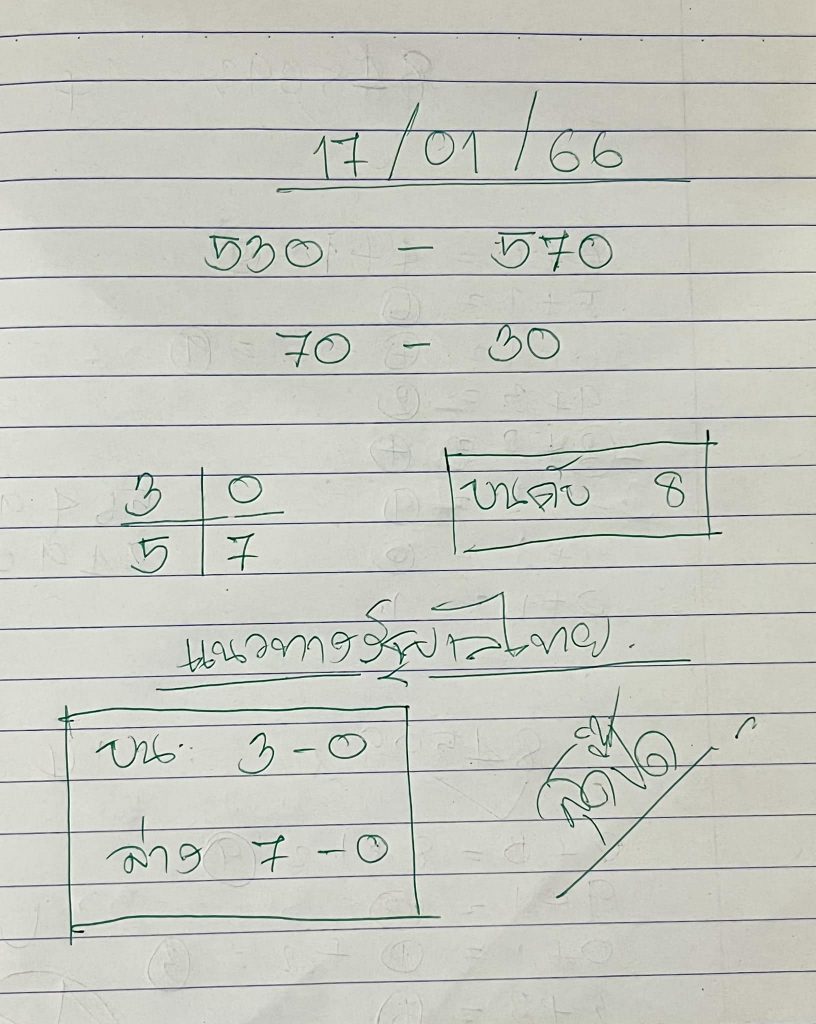 17/01/66
530 - 570
70 - 30
3 0
5 7
บนดับ 8
แนวทางรัฐบาลไทย.
บน. 3-0
ล่าง 7-0